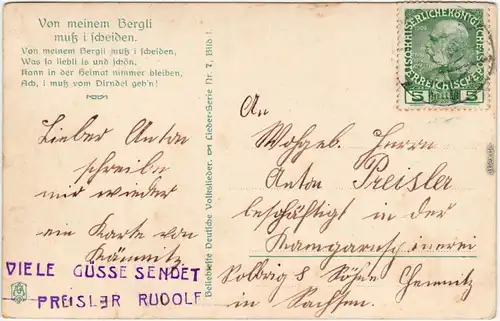 Von meinem Bergli
muß i scheiden.
Von meinem Bergli muß i scheiden,
Was so liebli is und schön,
Kann in der Heimat nimmer bleiben,
Ach, i muß vom Dirndel geh'n!
Lieber Anton
schreibe
mir wieder
ein Karte von
VIELE GÜSSE SENDET
PREISLER RUDOLF
Beliebteste Deutsche Volkslieder. Lieder-Serie Nr. 7, Bild 1.
5 5
An
Wohlgeb. Herrn
Anton Preisler
beschäftigt in der
Kamgarnspinerei
Solbrig & Söhne Chemnitz
in Sachsen.